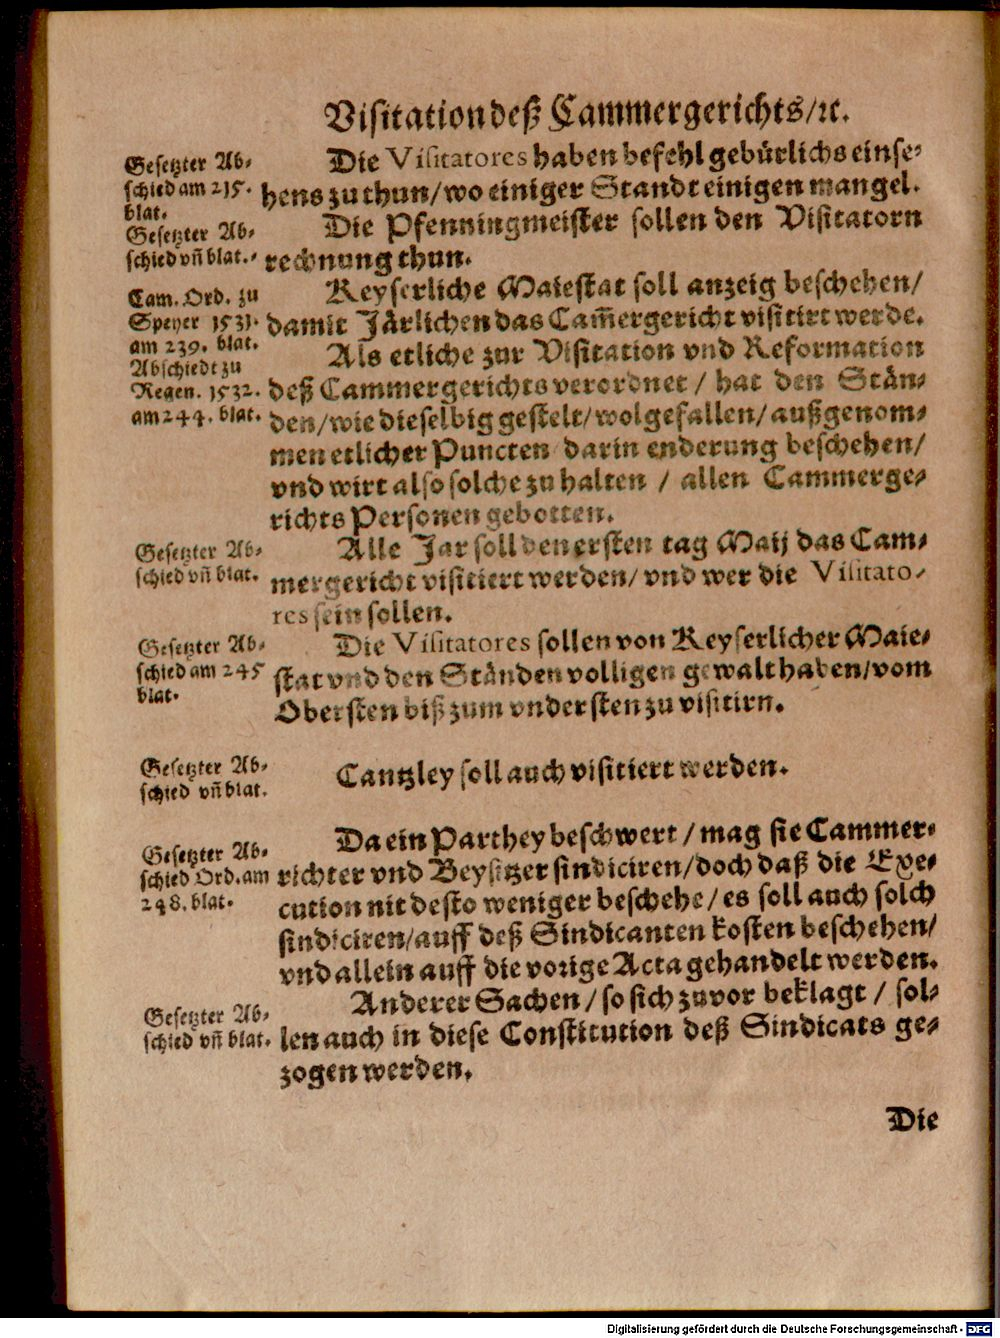 Visitation deß Cammergerichts/ꝛc.
Gesetzter Ab-
schied am 215.
blat.
Die Visitatores haben befehl gebürlichs einse-
hens zu thun/wo einiger Standt einigen mangel.
Gesetzter Ab-
schied vñ blat.
Die Pfenningmeister sollen den Visitatorn
rechnung thun.
Cam. Ord. zu
Speyer 1531.
am 239. blat.
Keyserliche Maiestat soll anzeig beschehen/
damit Järlichen das Cam̃ergericht visitirt werde.
Abschiedt zu
Regen. 1532.
am 244. blat.
Als etliche zur Visitation vnd Reformation
deß Cammergerichts verordnet / hat den Stän-
den/wie dieselbig gestelt/wolgefallen/außgenom-
men etlicher Puncten darin enderung beschehen/
vnd wirt also solche zu halten / allen Cammerge-
richts Personen gebotten.
Gesetzter Ab-
schied vñ blat.
Alle Jar soll den ersten tag Maij das Cam-
mergericht visitiert werden/ vnd wer die Visitato-
res sein sollen.
Gesetzter Ab-
schied am 245
blat.
Die Visitatores sollen von Keyserlicher Maie-
stat vnd den Ständen volligen gewalt haben/vom
Obersten biß zum vndersten zu visitirn.
Gesetzter Ab-
schied vñ blat.
Cantzley soll auch visitiert werden.
Gesetzter Ab-
schied Ord. am
248. blat.
Da ein Parthey beschwert / mag sie Cammer-
richter vnd Beysitzer sindiciren/doch daß die Exe-
cution nit desto weniger beschehe/es soll auch solch
sindiciren/auff deß Sindicanten kosten beschehen/
vnd allein auff die vorige Acta gehandelt werden.
Gesetzter Ab-
schied vñ blat.
Anderer Sachen / so sich zuvor beklagt / sol-
len auch in diese Constitution deß Sindicats ge-
zogen werden.
Die
Digitalisierung gefördert durch die Deutsche Forschungsgemeinschaft - DFG